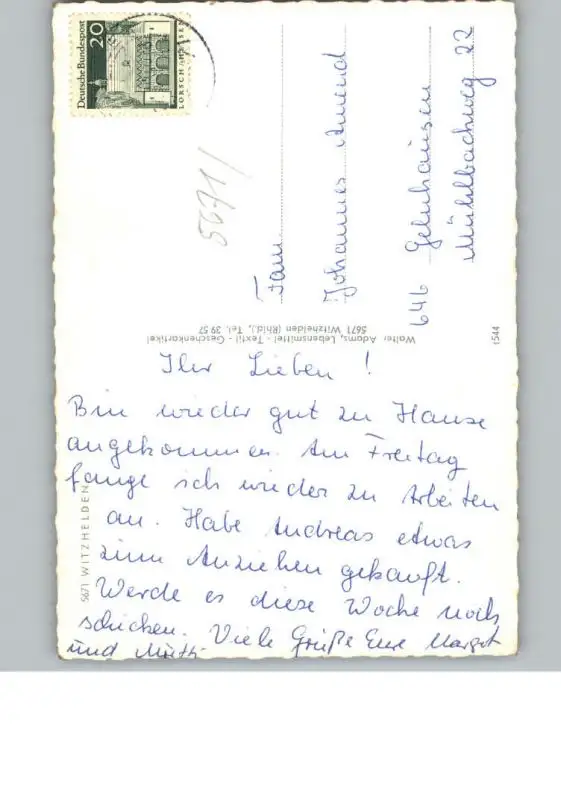 Deutsche Bundespost
20
LORSCH · HESSEN
5671/
Fam.
Johannes Amend
646 Gelnhausen
Mühlbachweg 22
Walter Adams, Lebensmittel - Textil - Geschenkartikel
5671 Witzhelden (Rhld.), Tel. 39 57
1544
5671 WITZHELDEN
Ihr Lieben!
Bin wieder gut zu Hause
angekommen. Am Freitag
fange ich wieder zu Arbeiten
an. Habe Andreas etwas
zum Anziehen gekauft.
Werde es diese Woche noch
schicken. Viele Grüße Eure Margot
und